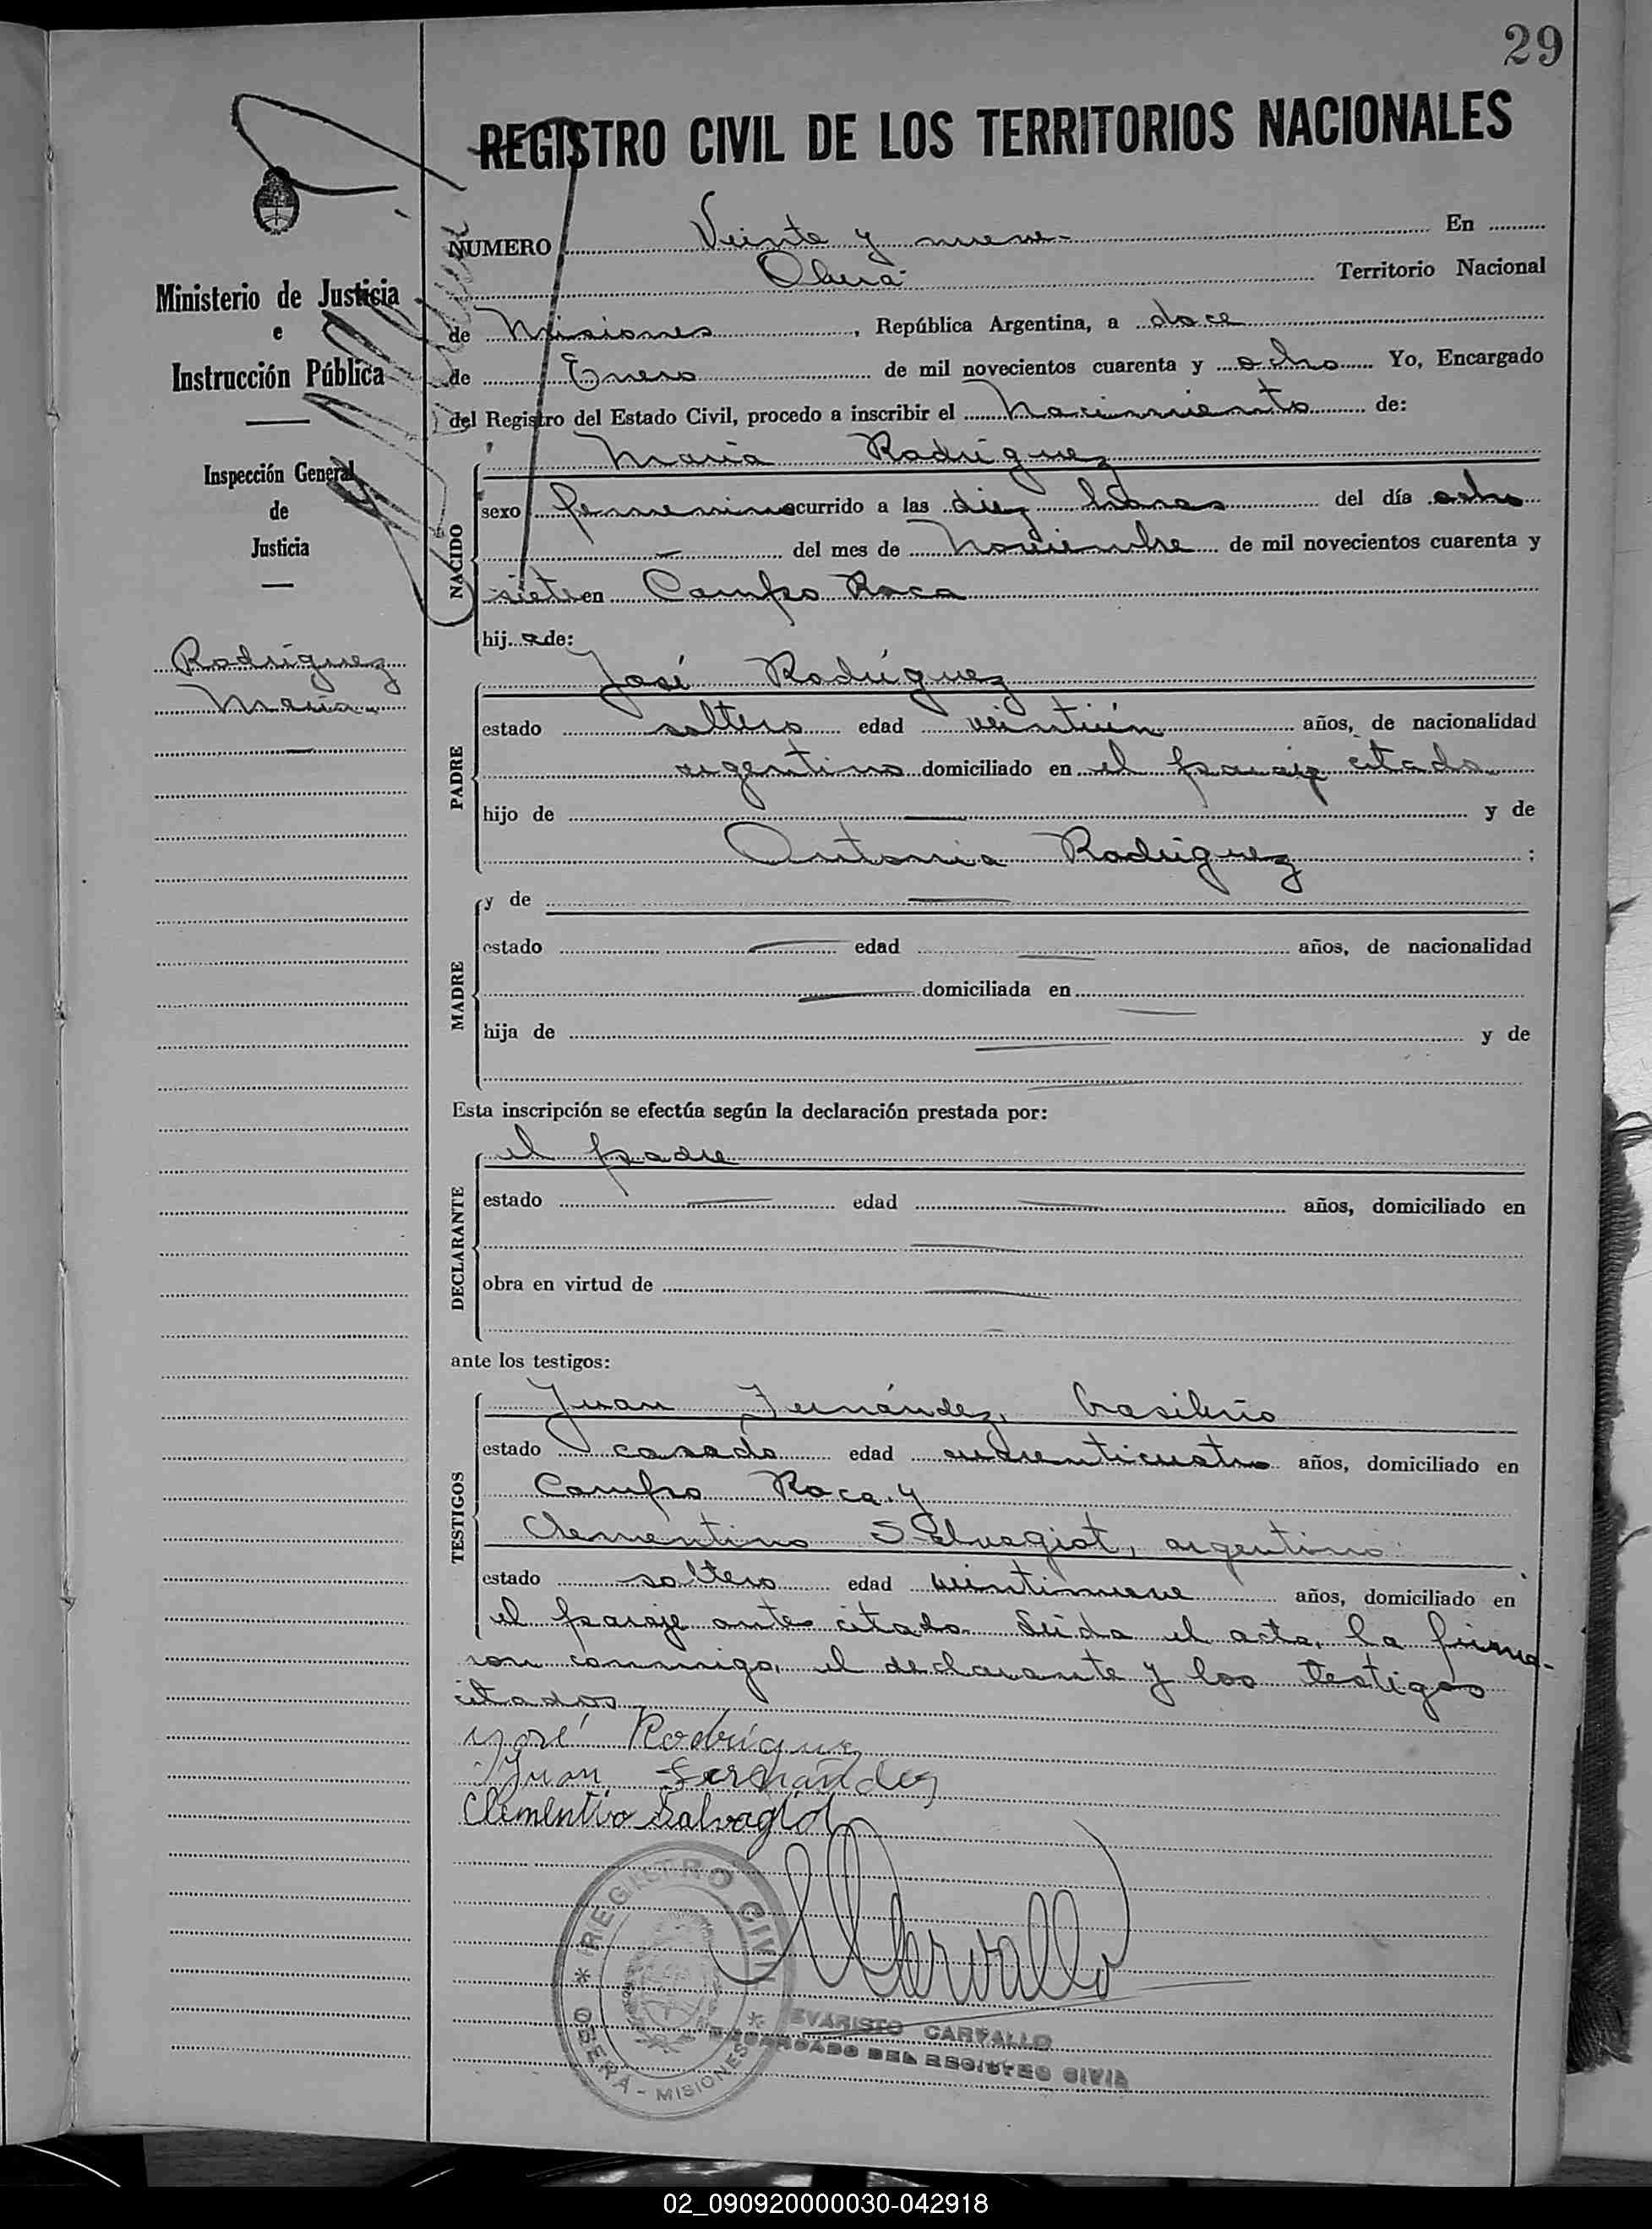 29
REGISTRO CIVIL DE LOS TERRITORIOS NACIONALES
Ministerio de Justicia
e
Instrucción Pública
Inspección General
de
Justicia
Rodríguez
María
NUMERO Veinte y nueve En
Oberá Territorio Nacional
de Misiones, República Argentina, a doce
de Enero de mil novecientos cuarenta y ocho Yo, Encargado
del Registro del Estado Civil, procedo a inscribir el Nacimiento de:
NACIDO
María Rodríguez
sexo femenino ocurrido a las diez horas del día ocho
del mes de Noviembre de mil novecientos cuarenta y
siete en Campo Roca
hija de:
PADRE
José Rodríguez
estado soltero edad veintiún años, de nacionalidad
argentino domiciliado en el paraje citado
hijo de y de
Antonia Rodríguez ;
MADRE
y de
estado edad años, de nacionalidad
domiciliada en
hija de y de
Esta inscripción se efectúa según la declaración prestada por:
DECLARANTE
el padre
estado edad años, domiciliado en
obra en virtud de
ante los testigos:
TESTIGOS
Juan Fernández, brasilero
estado casado edad años, domiciliado en
Campo Roca y
Clementino Salvagiot, argentino
estado soltero edad veintinueve años, domiciliado en
el paraje antes citado. Leída el acta, la firma-
ron conmigo, el declarante y los testigos
citados
José Rodríguez
Juan Fernández
Clementino Salvagiot
Carvallo
REGISTRO CIVIL
OBERÁ - MISIONES
EVARISTO CARVALLO
ENCARGADO DEL REGISTRO CIVIL
02_090920000030-042918